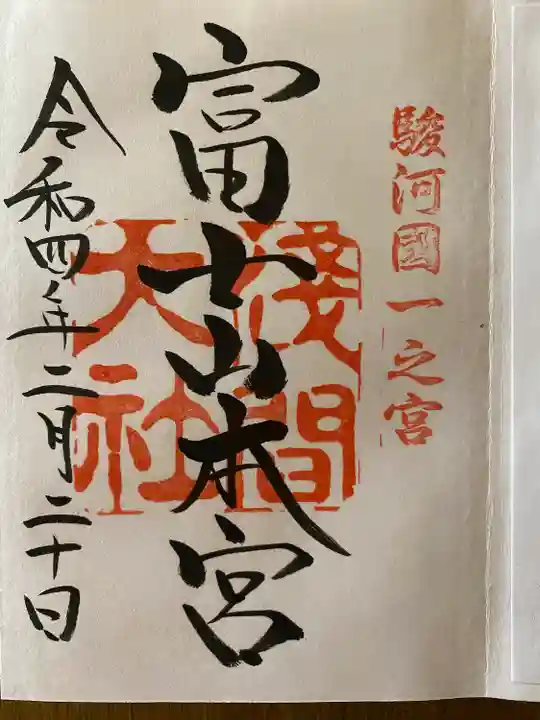 駿河國一之宮
富士山本宮
淺間
大社
令和四年二月二十日